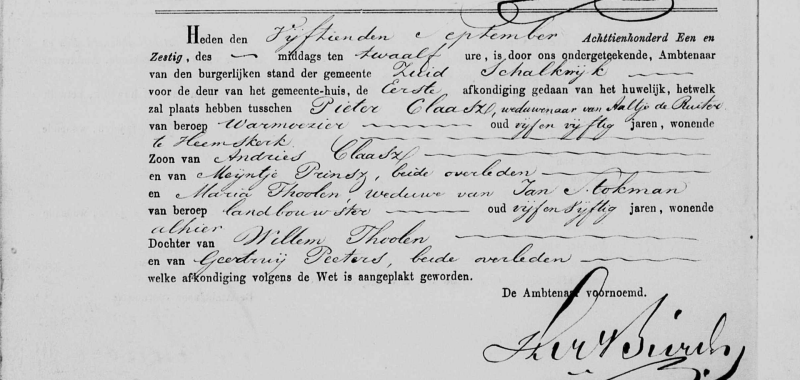 Heden den Vijftienden September Achttienhonderd Een en
Zestig, des — middags ten twaalf ure, is door ons ondergeteekende, Ambtenaar
van den burgerlijken stand der gemeente Zuid Schalkwijk
voor de deur van het gemeente-huis, de Eerste afkondiging gedaan van het huwelijk, hetwelk
zal plaats hebben tusschen Pieter Claasz, weduwenaar van Aaltje de Ruiter
van beroep Warmoezier oud vijf en vijftig jaren, wonende
te Heemskerk
Zoon van Andries Claasz
en van Meijntje Prinsz, beide overleden
en Maria Thoolen, weduwe van Jan Stokman
van beroep landbouwster oud vijf en vijftig jaren, wonende
alhier
Dochter van Willem Thoolen
en van Geertruij Peeters, beide overleden
welke afkondiging volgens de Wet is aangeplakt geworden.
De Ambtenaar voornoemd.